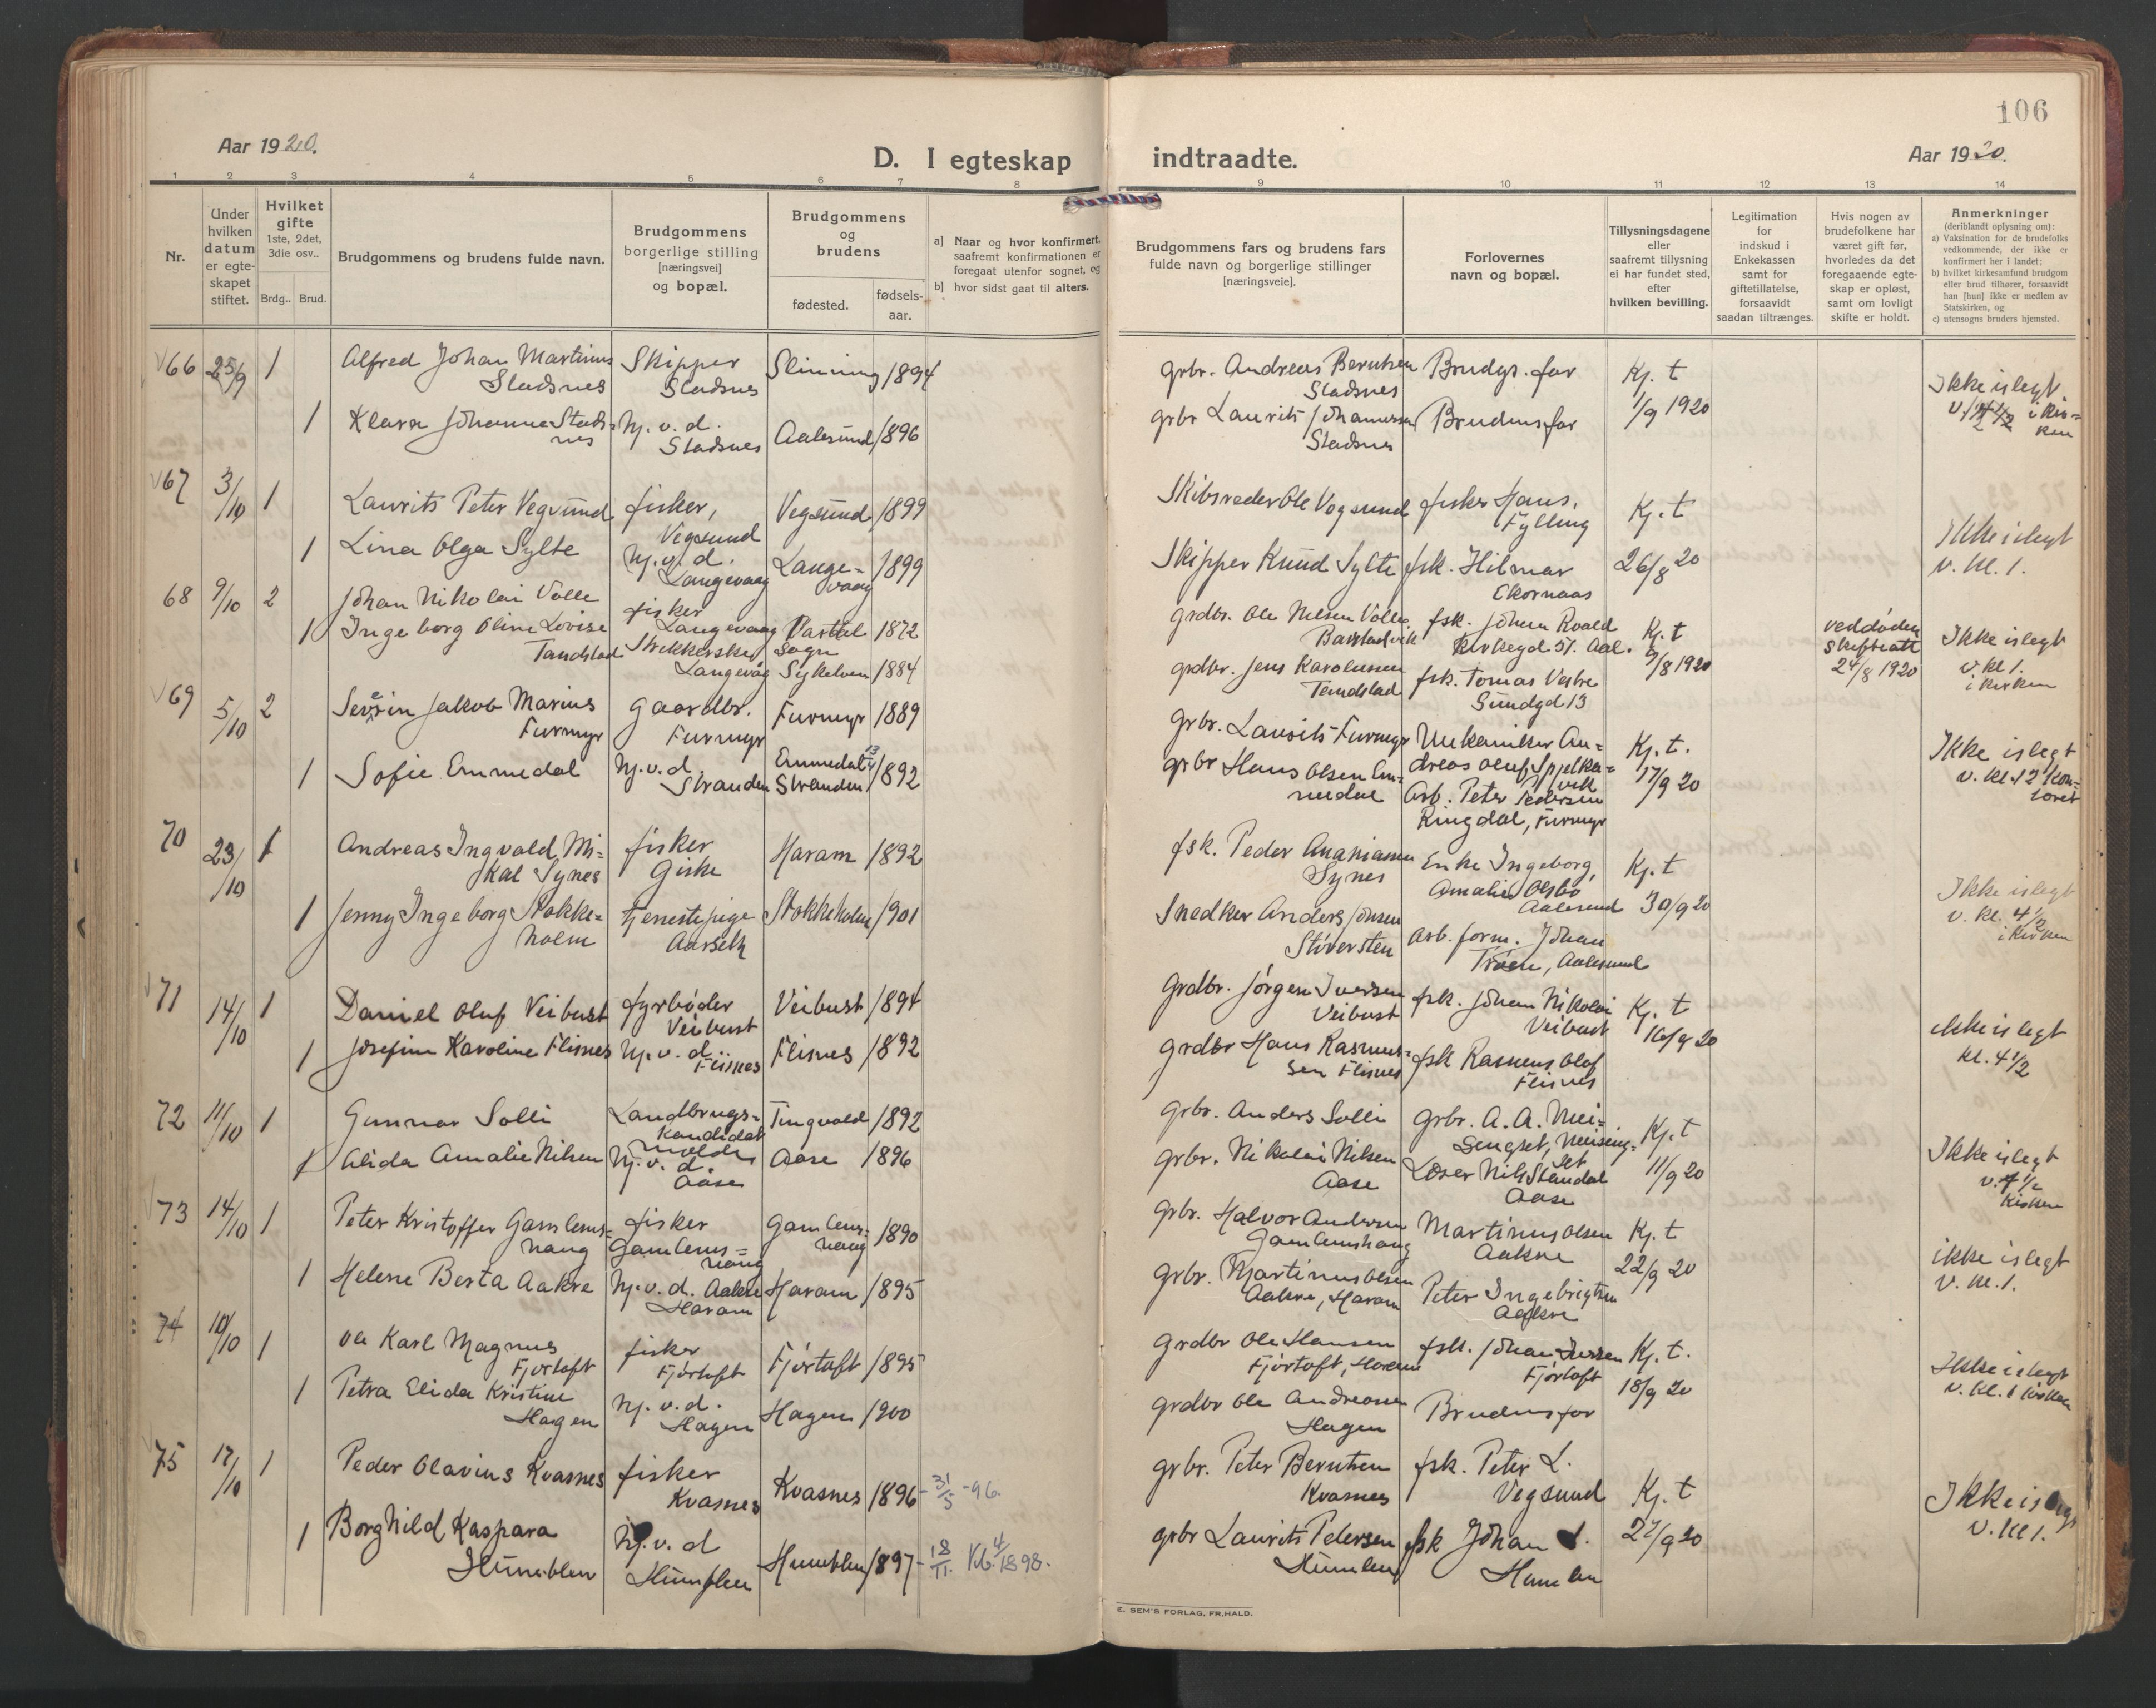 106
Aar 1920.
D. I egteskap indtraadte.
Aar 1920.
1 2 3 4 5 6 7 8 9 10 11 12 13 14
Nr.
Under hvilken datum er egteskapet stiftet.
Hvilket gifte 1ste, 2det, 3die osv..
Brdg.. Brud.
Brudgommens og brudens fulde navn.
Brudgommens borgerlige stilling [næringsvei] og bopæl.
Brudgommens og brudens
fødested.
fødsels-aar.
a] Naar og hvor konfirmert, saafremt konfirmationen er foregaat utenfor sognet, og
b] hvor sidst gaat til alters.
Brudgommens fars og brudens fars fulde navn og borgerlige stillinger [næringsveie].
Forlovernes navn og bopæl.
Tillysningsdagene eller saafremt tillysning ei har fundet sted, efter hvilken bevilling.
Legitimation for indskud i Enkekassen samt for giftetillatelse, forsaavidt saadan tiltrænges.
Hvis nogen av brudefolkene har været gift før, hvorledes da det foregaaende egteskap er opløst, samt om lovligt skifte er holdt.
Anmerkninger (deriblandt oplysning om):
a) Vaksination for de brudefolks vedkommende, der ikke er konfirmert her i landet;
b) hvilket kirkesamfund brudgom eller brud tilhører, forsaavidt han [hun] ikke er medlem av Statskirken, og
c) utensogns bruders hjemsted.
66 25/9 1 Alfred Johan Martinus Skipper Slinning 1894 grbr. Andreas Berntsen Brudgs. far Kj. t Ikke islegt
Sladsnes Sladsnes Sladsnes 1/9 1920
1 Klara Johanna Slads= Hj. v. d. Aalesund 1896 grbr Laurits Johannessen Brudens far
nes Sladsnes Sladsnes
67 3/10 1 Laurits Peter Vegsund fisker, Vegsund 1899 Skibsreder Ole Vegsund fisker Hans. Kj. t
Vegsund Fylling
1 Lina Olga Sylte Hj. v. d. Lange= 1899 Skipper Knud Sylte fsk. Hilmar 26/8 20 Ikke islegt
Langevaag vaag v. kl. 1.
68 9/10 2 Johan Nikolai Volle fisker Vartdal 1872 grdbr. Ole Nilsen Volle fsk. Johan Roald Kj. t ved døden Ikke islegt
Langevaag sogn 9/8 1920 skifteatt v kl 1.
1 Ingeborg Oline Lovise Sykelven 1884 grdbr. Jens Karolussen fsk. Tomas Vestre 24/8 1920 i kirken
Tandstad Langevåg Tandstad Sundgd 13
69 5/10 2 Severin Jakob Marius Gaardbr. Furmyr 1889 Grbr. Laurits Furmyr Mekaniker An= Kj. t. Ikke islegt
Furmyr Furmyr dreas Oluf Spjelka= 17/9 20
vik
1 Sofie Emmedal Hj. v. d. Emmedal 1892 grbr Hans Olsen Em= Arb. Peter Pedersen
Stranden Stranden medal Ringdal, Furmyr
70 23/10 1 Andreas Ingvald Mi= fisker Haram 1892 fsk. Peder Ananiassen Enke Ingeborg, Kj. t Ikke islegt
kal Synes Giske Synes Amalie Olsbø 30/9 20 v. kl. 4 1/2
Aalesund i kirken
1 Jenny Ingeborg Stokke= tjenestepige Stokkeholm 1901 Snedker Anders Jonsen Arb. form. Johan
holm Aarseth Trøen, Aalesund
71 14/10 1 Daniel Oluf Veibust fyrbøder Veibust 1894 Grdbr. Jørgen Iversen fsk. Johan Nikolai Kj. t
Veibust Veibust Veibust 16/9 20
1 Josefine Karoline Flisnes Hj. v. d. Flisnes 1892 grdbr Hans Rasmus= fsk Rasmus Olof ikke islegt
Flisnes sen Flisnes Flisnes kl. 4 1/2
72 11/10 1 Gunnar Solli Landbrugs= Tingvold 1892 grbr. Anders Solli grbr. A. A. Mei= Kj. t
kandidat sengset, 11/9 20
Molde
1 Alida Amalie Nilsen Hj. v. d. Aase 1896 grbr. Nikolai Nilsen Aase Ikke islegt
Aase Aase kirken
73 14/10 1 Peter Kristoffer Gamlems= fisker Gamlems= 1890 grbr. Halvor Andersen Martinus Olsen Kj. t
haug Gamlems= haug Gamlemshaug Aakre 22/9 20
haug
1 Helene Berta Aakre Hj. v. d. Aakre Haram 1895 grbr. Martinus Olsen Peter Ingebrigtsen ikke islegt
Haram Aakre, Haram Aakre v. kl. 1.
74 10/10 1 Ole Karl Magnus fisker Fjørtoft 1895 grdbr Ole Hansen fsk. Johan Kj. t.
Fjørtoft Fjørtoft Fjørtoft, Haram Fjørtoft 18/9 20
1 Petra Elida Kristine Hj. v. d. Hagen 1900 grdbr Ole Andreassen Brudens far Ikke islegt
Hagen Hagen Hagen
75 17/10 1 Peder Olavius Kvasnes fisker Kvasnes 1896 - 31/5 -96. grbr. Peter Berntsen fsk. Peter L. Kj. t
Kvasnes Kvasnes Vegsund 27/9 20
1 Borghild Kaspara Hj. v. d Humblen 1897 - 18/11. Kb. 4/1898. grbr Laurits Pedersen fsk Johan Ikke islegt
Humblen Humblen Humlen Humlen v. kl 1.
E. SEM'S FORLAG, FR.HALD.